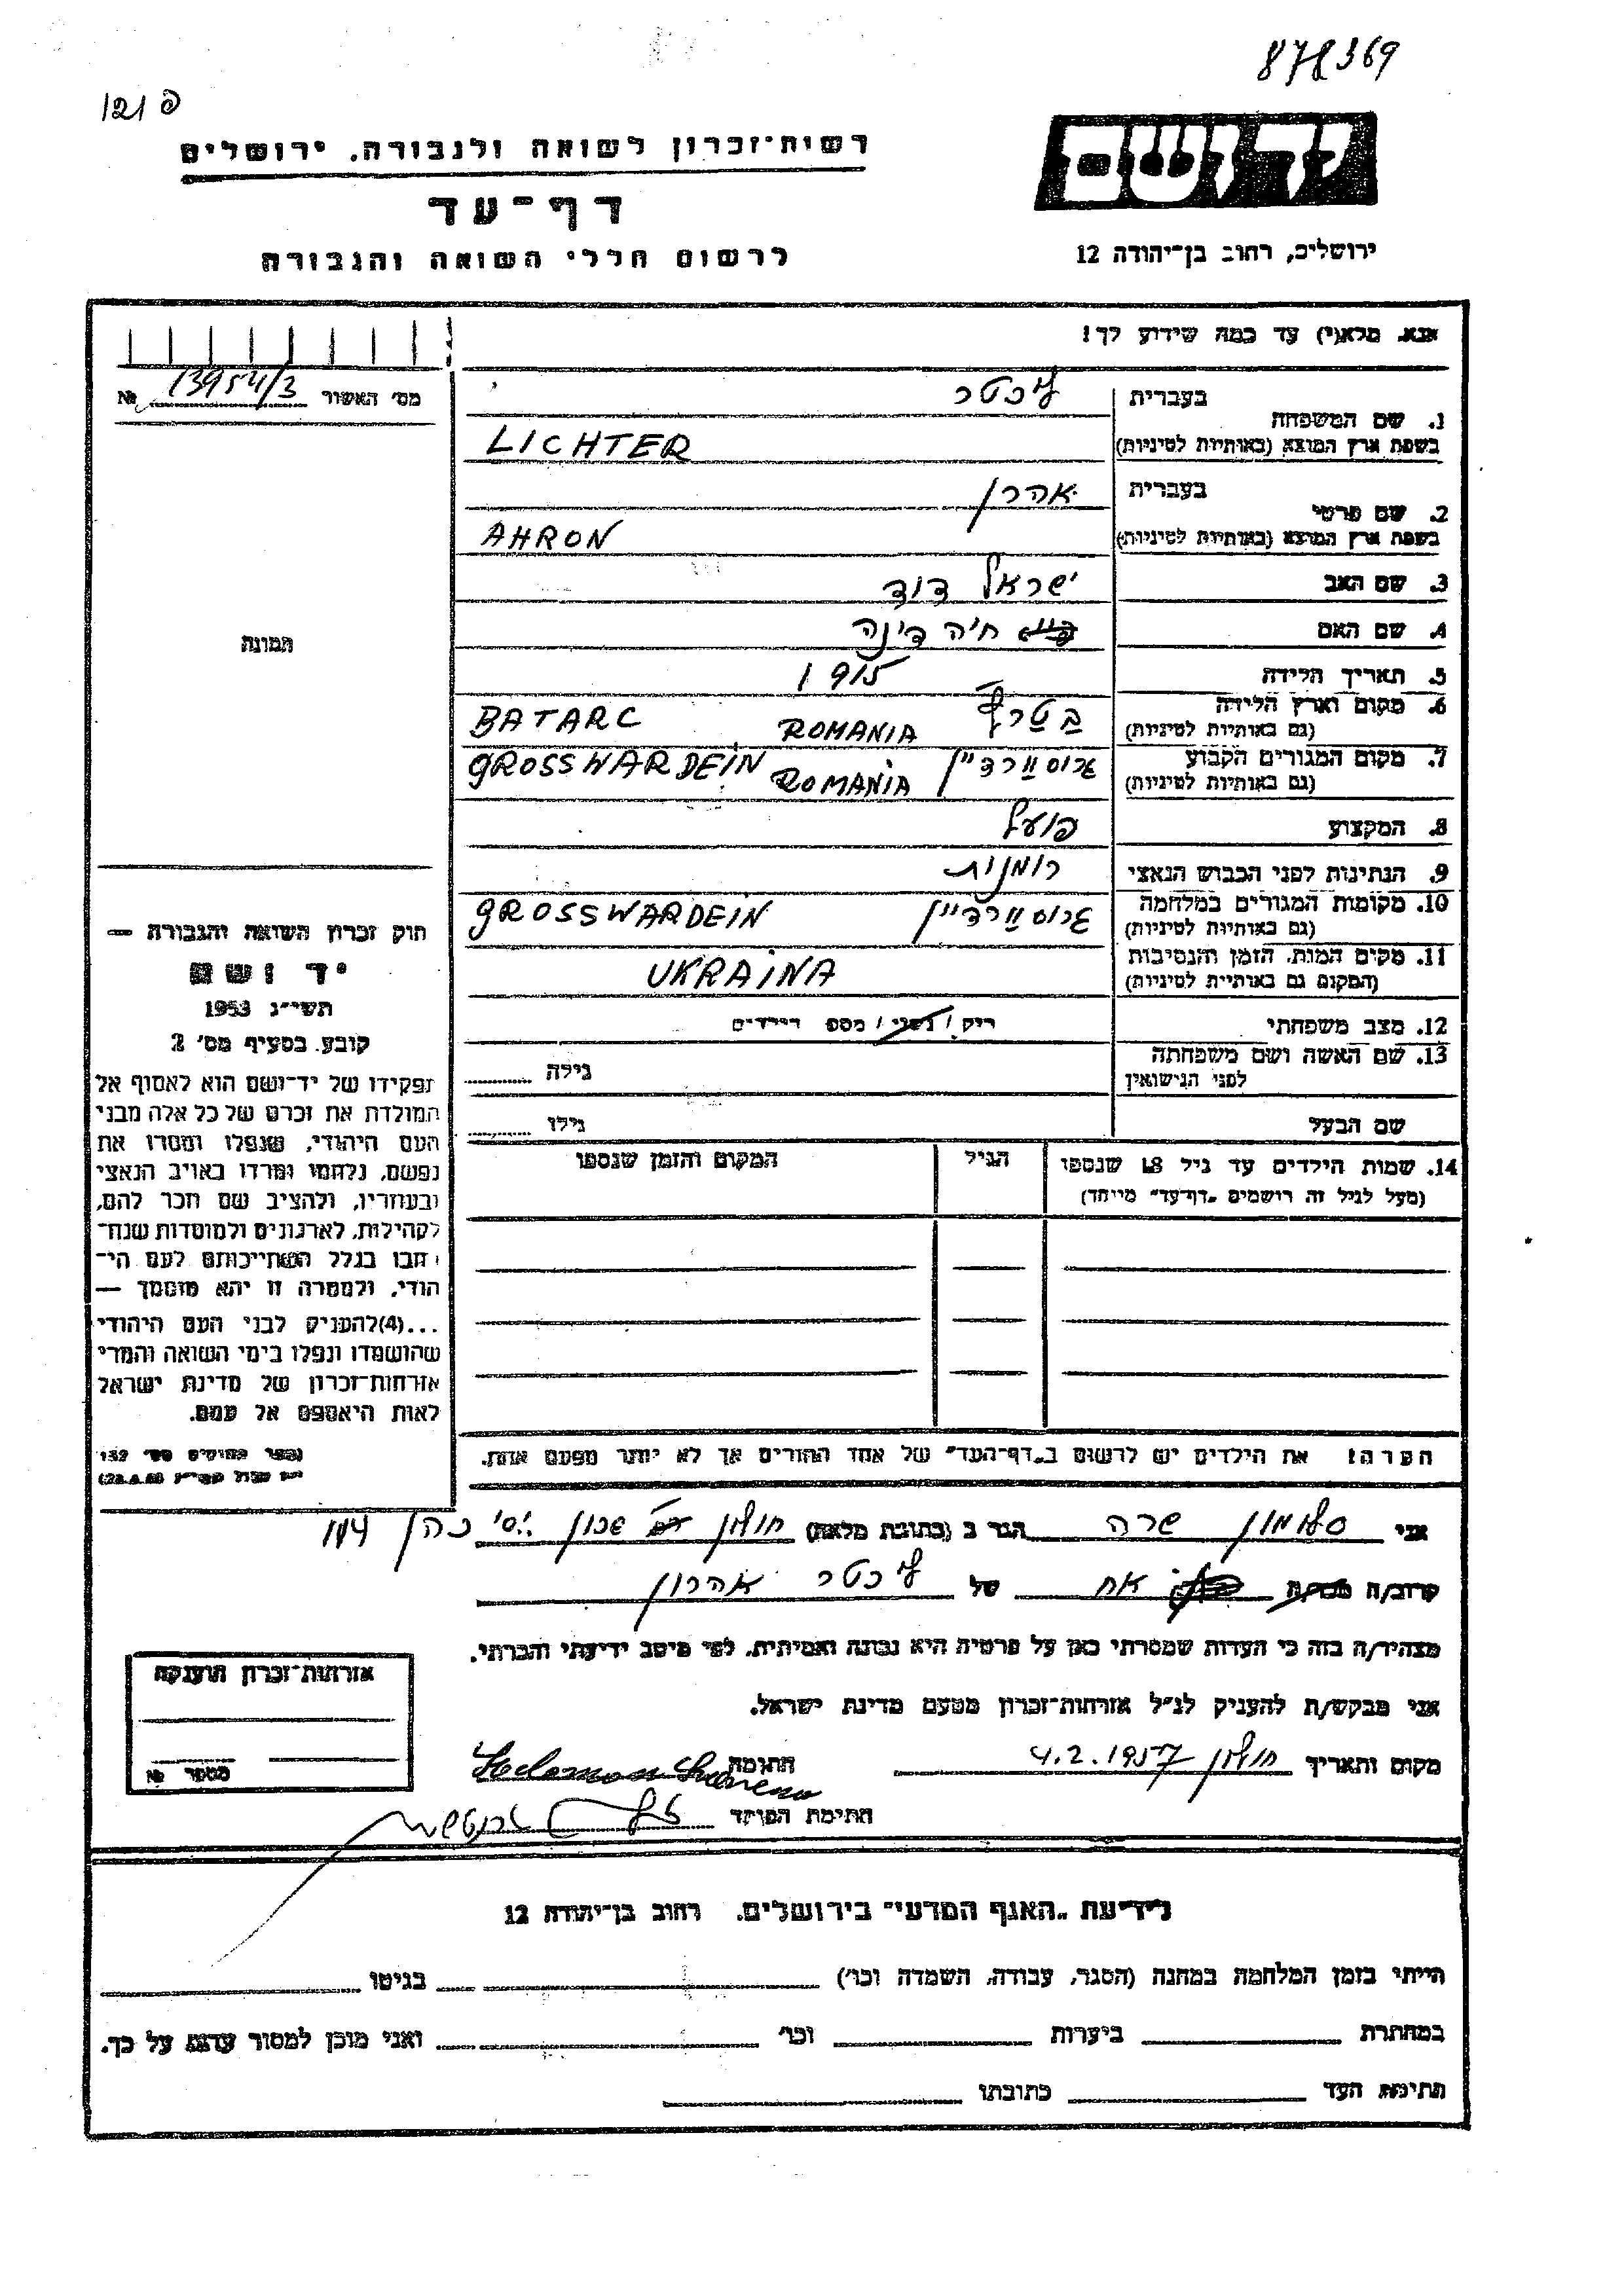 878369
פ 121
יד ושם
רשות־זכרון לשואה ולגבורה, ירושלים
דף־עד
ירושלים, רחוב בן־יהודה 12
לרשום חללי השואה והגבורה
אנא, מלא(י) עד כמה שידוע לך!
מס' האשור № 13954/3
1. שם המשפחה בעברית ליכטר
בשפת ארץ המוצא (באותיות לטיניות) LICHTER
2. שם פרטי בעברית אהרן
בשפת ארץ המוצא (באותיות לטיניות) AHRON
3. שם האב ישראל דוד
4. שם האם חיה דינה
5. תאריך הלידה 1915
6. מקום וארץ הלידה בטרץ ROMANIA BATARC
(גם באותיות לטיניות)
7. מקום המגורים הקבוע גרוסוורדיין ROMANIA GROSSWARDEIN
(גם באותיות לטיניות)
8. המקצוע פועל
9. הנתינות לפני הכבוש הנאצי רומנית
10. מקומות המגורים במלחמה גרוסוורדיין GROSSWARDEIN
(גם באותיות לטיניות)
11. מקום המות, הזמן והנסיבות UKRAINA
(המקום גם באותיות לטיניות)
12. מצב משפחתי רוק / נשוי / מספ הילדים
13. שם האשה ושם משפחתה גילה
לפני הנישואין
שם הבעל גילו
14. שמות הילדים עד גיל 18 שנספו הגיל המקום והזמן שנספו
(מעל לגיל זה רושמים „דף־עד" מיוחד)
הערה: את הילדים יש לרשום ב„דף־העד" של אחד ההורים אך לא יותר מפעם אחת.
תמונה
חוק זכרון השואה והגבורה —
יד ושם
תשי"ג 1953
קובע בסעיף מס' 2
תפקידו של יד־ושם הוא לאסוף אל
המולדת את זכרם של כל אלה מבני
העם היהודי, שנפלו ומסרו את
נפשם, נלחמו ומרדו באויב הנאצי
ובעוזריו, ולהציב שם וזכר להם,
לקהילות, לארגונים ולמוסדות שנח־
רבו בגלל השתייכותם לעם הי־
הודי, ולמטרה זו יהא מוסמך —
...(4)להעניק לבני העם היהודי
שהושמדו ונפלו בימי השואה והמרי
אזרחות־זכרון של מדינת ישראל
לאות היאספם אל עמם.
אני סולומון שרה הגר ב (כתובת מלאה) חולון שכון יוסי כהן 114
קרוב/ה אח של ליכטר אהרון
מצהיר/ה בזה כי העדות שמסרתי כאן על פרטיה היא נכונה ואמיתית, לפי מיטב ידיעתי והכרתי.
אני מבקש/ת להעניק לנ"ל אזרחות־זכרון מטעם מדינת ישראל.
מקום ותאריך חולון 4.2.1957 חתימה
חתימת הפוקד
אזרחות־זכרון הוענקה
מספר №
לידיעת „האגף המדעי" בירושלים, רחוב בן־יהודה 12
הייתי בזמן המלחמה במחנה (הסגר, עבודה, השמדה וכו') בגיטו
במחתרת ביערות וכו' ואני מוכן למסור עדות על כך.
חתימת העד כתובתו